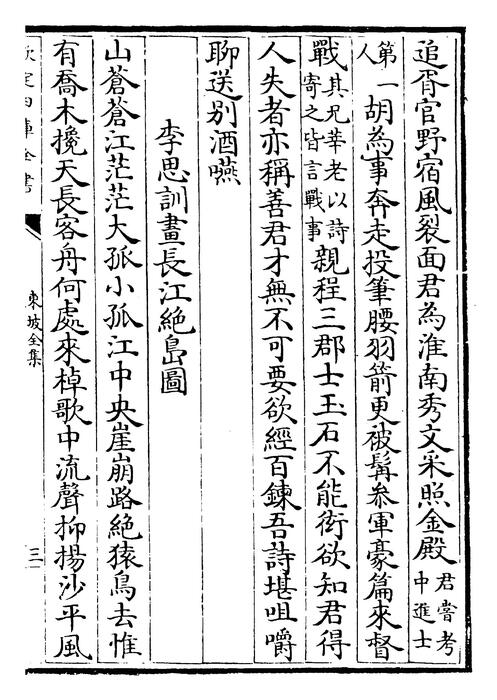 追胥官野宿風裂面君為淮南秀文采照金殿君嘗考中進士
第一人胡為事奔走投筆腰羽箭更被髯叅軍豪篇來督
戰其兄莘老以詩寄之皆言戰事親程三郡士玉石不能衒欲知君得
人失者亦稱善君才無不可要欲經百鍊吾詩堪咀嚼
聊送别酒嚥
李思訓畫長江絶島圖
山蒼蒼江茫茫大孤小孤江中央崖崩路絶猿鳥去惟
有喬木攙天長客舟何處來棹歌中流聲抑揚沙平風
欽定四庫全書
東坡全集
三